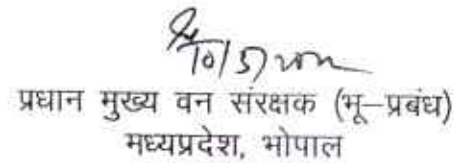 10/5/
प्रधान मुख्य वन संरक्षक (भू–प्रबंध)
मध्यप्रदेश, भोपाल